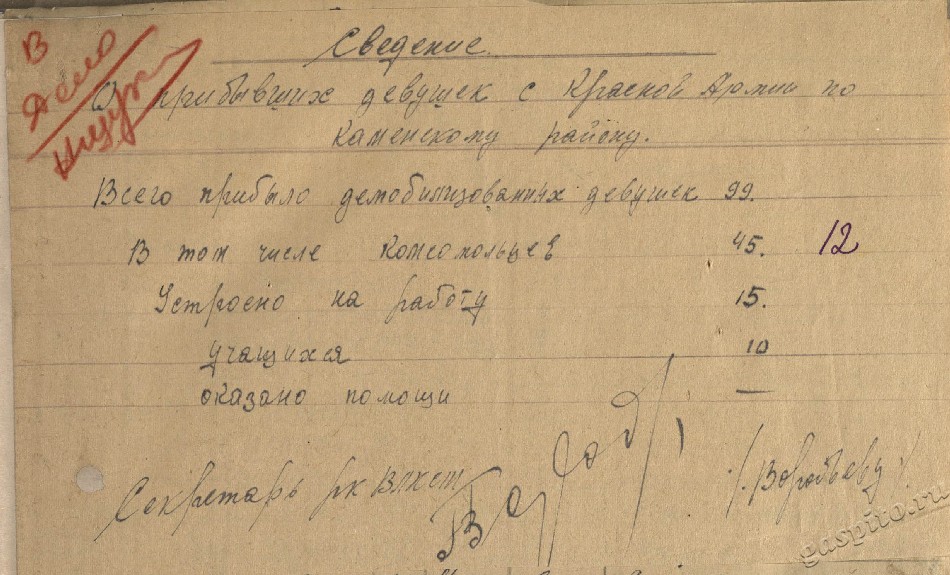 В
дело
Сведение
О прибывших девушек с Красной Армии по
Каменскому району.
Всего прибыло демобилизованных девушек 99.
В том числе Комсомольцев 45. 12
Устроено на работу 15.
учащихся 10
оказано помощи —
Секретарь рк ВЛКСМ
gaspito.ru